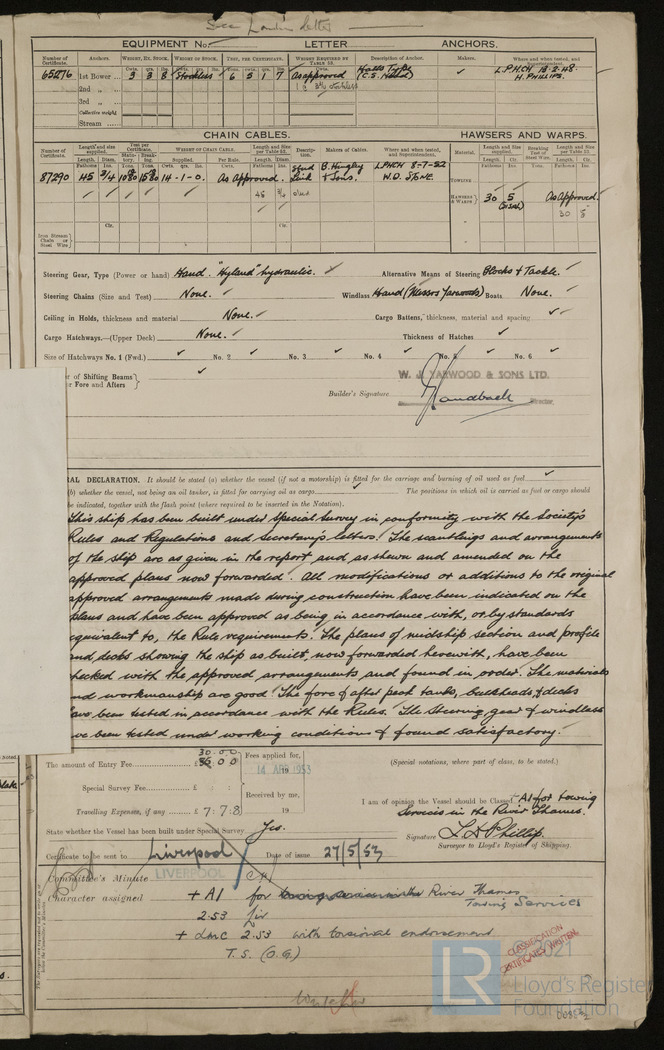 See London letter
EQUIPMENT No. LETTER ANCHORS.
Number of Certificate. Anchors. WEIGHT, EX. STOCK. WEIGHT OF STOCK. TEST, PER CERTIFICATE. WEIGHT REQUIRED BY TABLE 53. Description of Anchor. Makers. Where and when tested, and Superintendent.
Cwts. qrs. lbs. Cwts. qrs. lbs. Tons. cwts. qrs. lbs. Cwts.
65276 1st Bower ... 3 3 8 Stockless 6 5 1 7 As approved Halls Type (C.S. Head) ✓ L.P.H.CH 18-2-48. H. PHILLIPS.
2nd " "
3rd " "
Collective weight
Stream
CHAIN CABLES. HAWSERS AND WARPS.
Number of Certificate. Length and size supplied. Test per Certificate. WEIGHT OF CHAIN CABLE. Length and Size per Table 53. Description. Makers of Cables. Where and when tested, and Superintendent. Material. Length and Size supplied. Breaking Test of Steel Wire. Length and Size per Table 53.
Length. Diam. Statutory. Breaking. Supplied. Per Rule. Length. Diam.
Fathoms Ins. Tons. Tons. Cwts. Fathoms Ins.
87290 45 3/4 14-1-0. As Approved. Stud Link B. Hingley & Sons. LPHCH 8-7-52 W.D. STONE.
45 3/4 stud
TOWLINE
HAWSERS & WARPS 30 5 (Sisal) As Approved.
30 5
Iron Stream Chain or Steel Wire
Cir. Cir.
Steering Gear, Type (Power or hand) Hand. "Hyland" hydraulic. Alternative Means of Steering Blocks & Tackle.
Steering Chains (Size and Test) None. Windlass Hand (Messrs Yarwoods) Boats None.
Ceiling in Holds, thickness and material None. Cargo Battens, thickness, material and spacing ✓
Cargo Hatchways.—(Upper Deck) None. Thickness of Hatches ✓
Size of Hatchways No. 1 (Fwd.) ✓ No. 2 ✓ No. 3 ✓ No. 4 ✓ No. 5 ✓ No. 6 ✓
er of Shifting Beams
or Fore and Afters ✓
W. J. YARWOOD & SONS LTD.
Builder's Signature Director.
IAL DECLARATION. It should be stated (a) whether the vessel (if not a motorship) is fitted for the carriage and burning of oil used as fuel ✓
(b) whether the vessel, not being an oil tanker, is fitted for carrying oil as cargo ✓ The positions in which oil is carried as fuel or cargo should
be indicated, together with the flash point (where required to be inserted in the Notation).
This ship has been built under Special Survey in conformity with the Society's
Rules and Regulations and Secretary's letters. The scantlings and arrangements
of the ship are as given in the report and as shewn and amended on the
approved plans now forwarded. All modifications or additions to the original
approved arrangements made during construction have been indicated on the
plans and have been approved as being in accordance with, or by standards
equivalent to, the Rule requirements. The plans of midship section and profile
and decks showing the ship as built, now forwarded herewith, have been
hecked with the approved arrangements and found in order. The materials
nd workmanship are good. The fore & after peak tanks, bulkheads, & decks
ave been tested in accordance with the Rules. The Steering gear & windlass
ve been tested under working conditions & found satisfactory.
30.0.0
The amount of Entry Fee £ 36.0.0 Fees applied for, (Special notations, where part of class, to be stated.)
14 APR 1953
Special Survey Fee £ Received by me,
Travelling Expenses, if any £ 7:7:8 19
I am of opinion the Vessel should be Classed A1 for towing
Services in the River Thames.
State whether the Vessel has been built under Special Survey Yes.
Signature L. D. Phillip.
Surveyor to Lloyd's Register of Shipping.
Certificate to be sent to Liverpool Date of issue 27/5/53
Committee's Minute LIVERPOOL
Character assigned + A1 for towing services in the River Thames
Towing Services
2.53 Liv
+ LMC 2.53 with torsional endorsement
T.S. (O.G.)
CLASSIFICATION CERTIFICATES WRITTEN
© 2021
LR Lloyd's Register Foundation